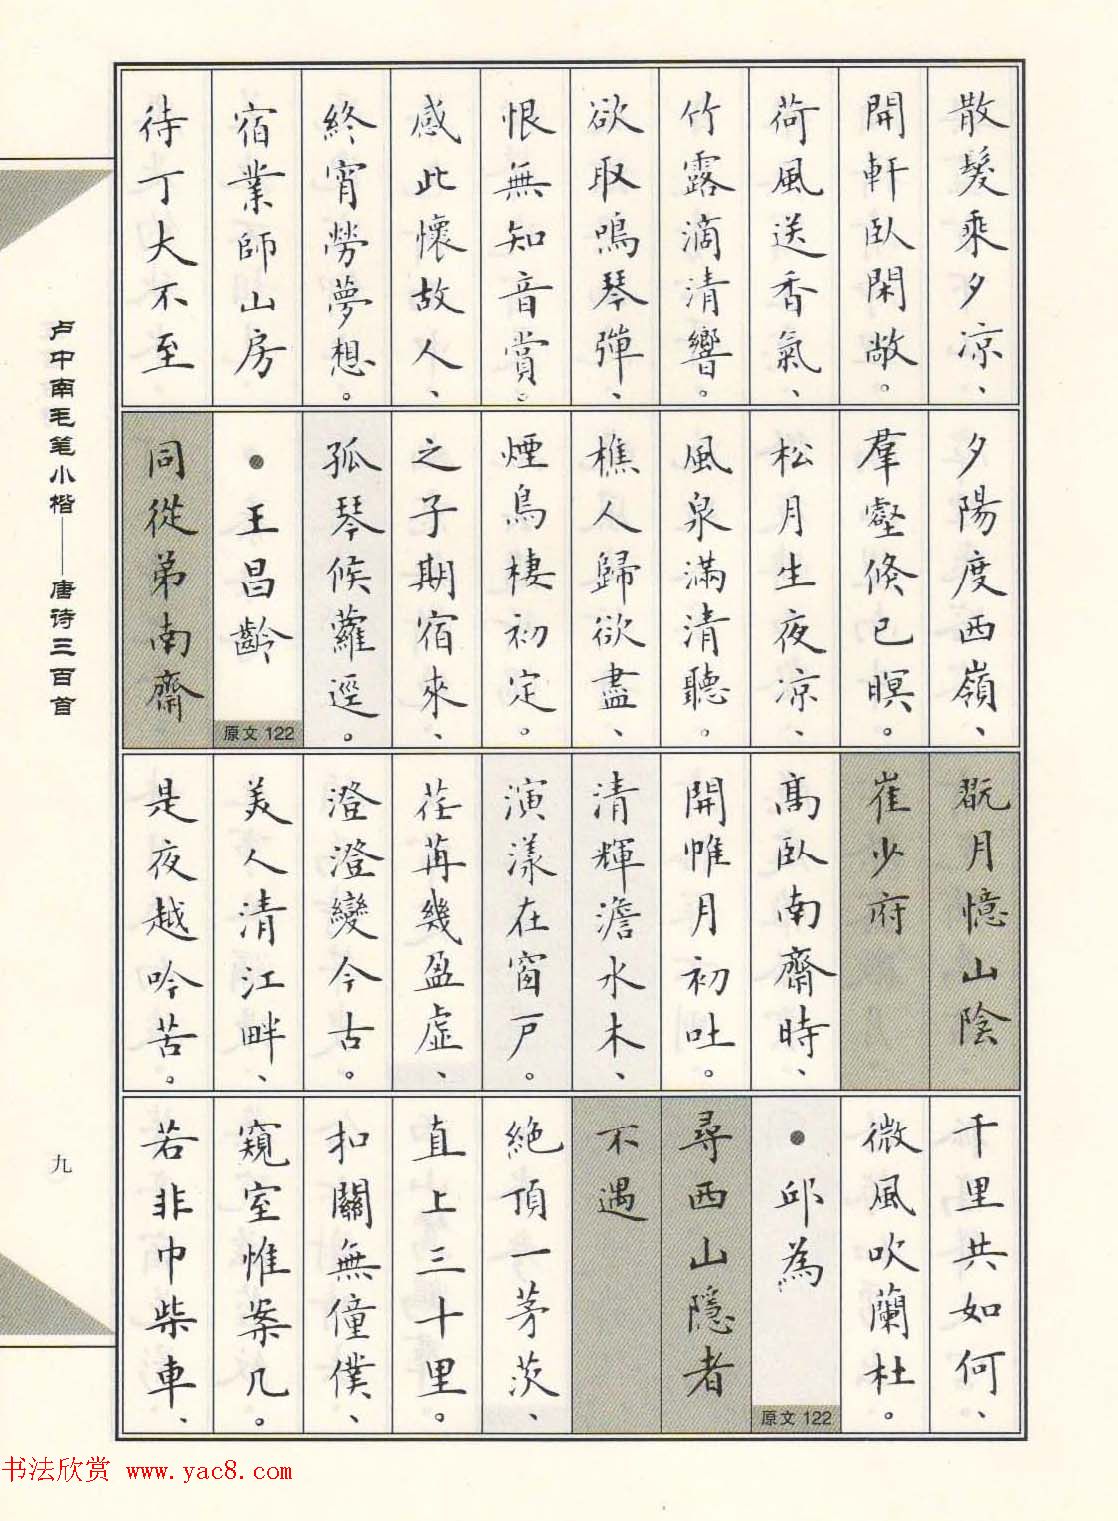 散髮乘夕凉、
開軒卧閑敞。
荷風送香氣、
竹露滴清響。
欲取鳴琴彈、
恨無知音賞。
感此懷故人、
終宵勞夢想。
宿業師山房
待丁大不至
夕陽度西嶺、
羣壑倏已暝。
松月生夜凉、
風泉滿清聽。
樵人歸欲盡、
煙鳥棲初定。
之子期宿來、
孤琴候蘿逕。
●王昌齡
原文 122
同從弟南齋
翫月憶山陰
崔少府
高卧南齋時、
開帷月初吐。
清輝澹水木、
演漾在窗戶。
荏苒幾盈虛、
澄澄變今古。
美人清江畔、
是夜越吟苦。
千里共如何、
微風吹蘭杜。
●邱為
原文 122
尋西山隱者
不遇
絕頂一茅茨、
直上三十里。
扣關無僮僕、
窺室惟案几。
若非巾柴車、
卢中南毛笔小楷——唐诗三百首
九
书法欣赏 www.yac8.com